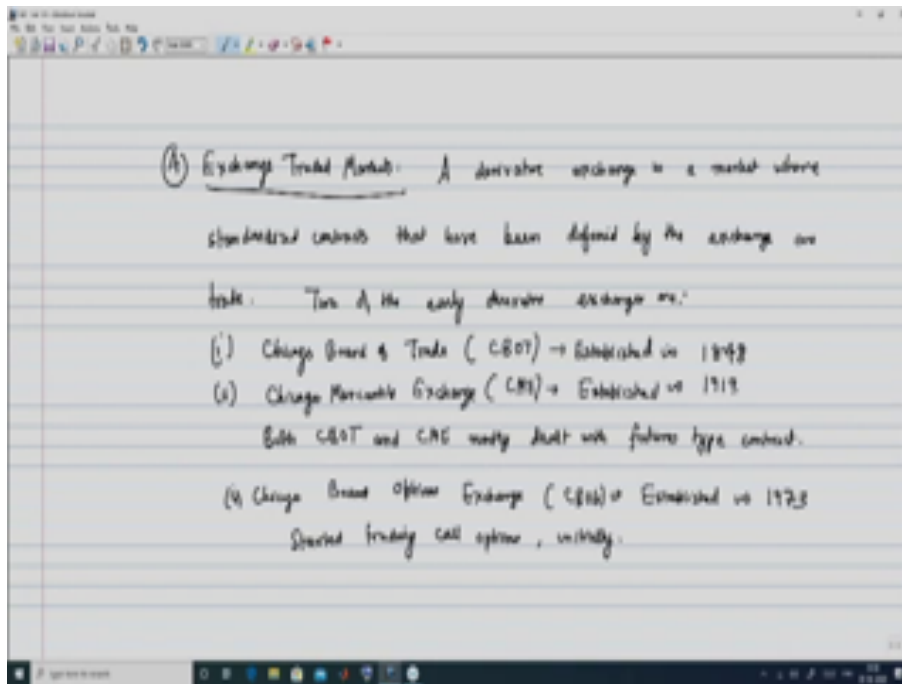 (A) Exchange Traded Markets. A derivative exchange is a market where
standardized contracts that have been defined by the exchange are
trade. Two of the early derivative exchanges are:
(i) Chicago Board of Trade (CBOT) → Established in 1848
(ii) Chicago Mercantile Exchange (CME) → Established in 1919
Both CBOT and CME mostly dealt with futures type contract.
Chicago Board Options Exchange (CBOE) → Established in 1973
Started trading call options, initially.